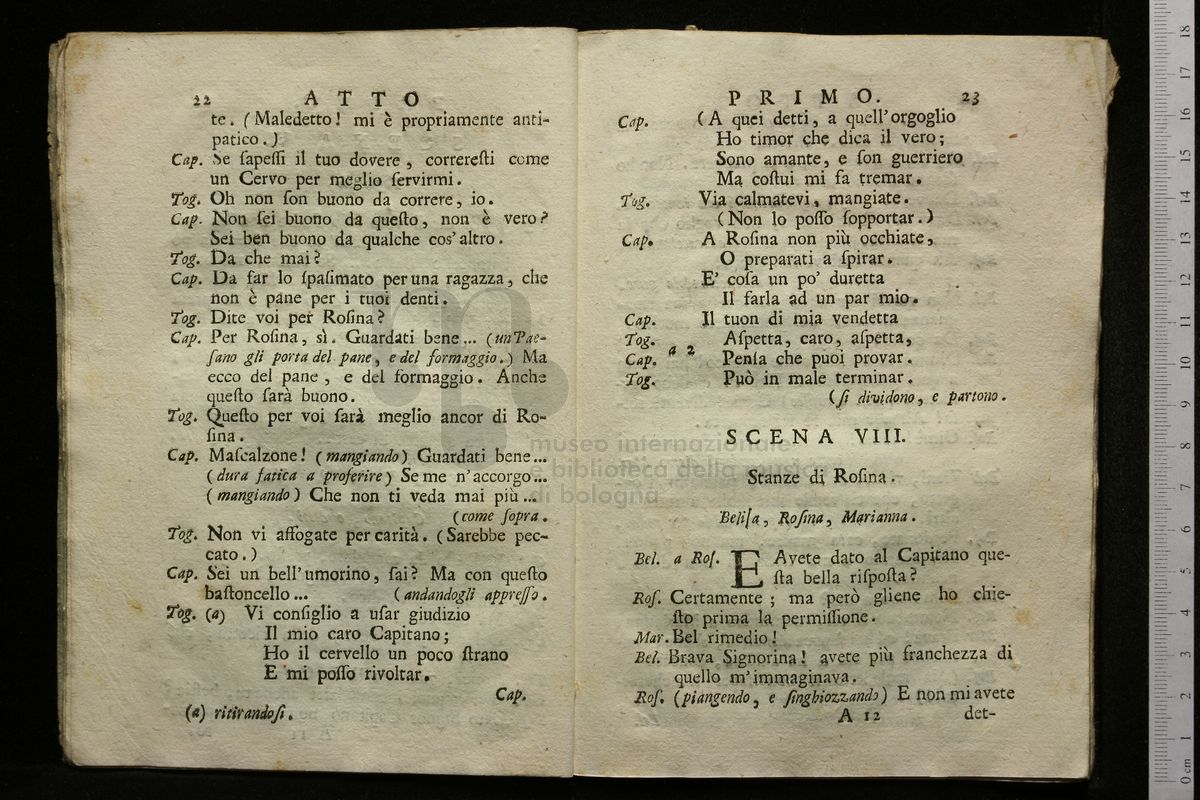 22 ATTO
te. (Maledetto! mi è propriamente anti-
patico.)
Cap. Se ſapeſſi il tuo dovere, correreſti come
un Cervo per meglio ſervirmi.
Tog. Oh non ſon buono da correre, io.
Cap. Non ſei buono da queſto, non è vero?
Sei ben buono da qualche cos'altro.
Tog. Da che mai?
Cap. Da far lo ſpaſimato per una ragazza, che
non è pane per i tuoi denti.
Tog. Dite voi per Roſina?
Cap. Per Roſina, sì. Guardati bene... (un Pae-
ſano gli porta del pane, e del formaggio.) Ma
ecco del pane, e del formaggio. Anche
queſto ſarà buono.
Tog. Queſto per voi ſarà meglio ancor di Ro-
ſina.
Cap. Maſcalzone! (mangiando) Guardati bene...
(dura fatica a proferire) Se me n'accorgo...
(mangiando) Che non ti veda mai più...
(come ſopra.
Tog. Non vi affogate per carità. (Sarebbe pec-
cato.)
Cap. Sei un bell'umorino, ſai? Ma con queſto
baſtoncello... (andandogli appreſſo.
Tog. (a) Vi conſiglio a uſar giudizio
Il mio caro Capitano;
Ho il cervello un poco ſtrano
E mi poſſo rivoltar.
Cap.
(a) ritirandoſi.
PRIMO. 23
Cap. (A quei detti, a quell'orgoglio
Ho timor che dica il vero;
Sono amante, e ſon guerriero
Ma coſtui mi fa tremar.
Tog. Via calmatevi, mangiate.
(Non lo poſſo ſopportar.)
Cap. A Roſina non più occhiate,
O preparati a ſpirar.
E' coſa un po' duretta
Il farla ad un par mio.
Cap. Il tuon di mia vendetta
Tog. Aſpetta, caro, aſpetta,
Cap. a 2 Penſa che puoi provar.
Tog. Può in male terminar.
(ſi dividono, e partono.
SCENA VIII.
Stanze di Roſina.
Beliſa, Roſina, Marianna.
Bel. a Roſ. E Avete dato al Capitano que-
ſta bella riſpoſta?
Roſ. Certamente; ma però gliene ho chie-
ſto prima la permiſſione.
Mar. Bel rimedio!
Bel. Brava Signorina! avete più franchezza di
quello m'immaginava.
Roſ. (piangendo, e ſinghiozzando) E non mi avete
A 12 det-
museo internazionale
e biblioteca della musica
di bologna
0 cm 1 2 3 4 5 6 7 8 9 10 11 12 13 14 15 16 17 18